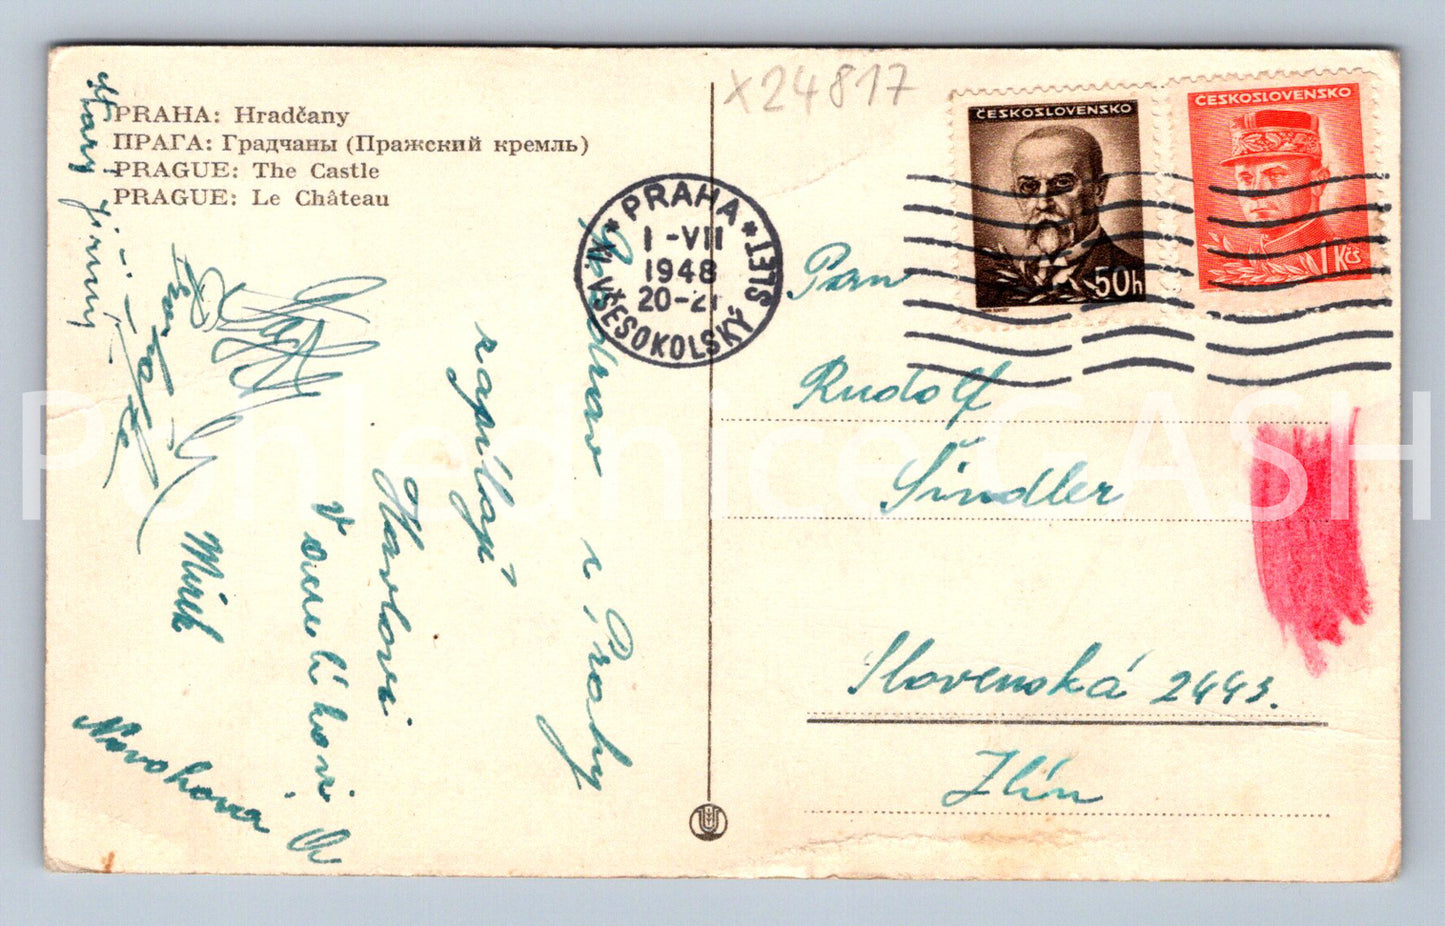 x24817
PRAHA: Hradčany
ПРАГА: Градчаны (Пражский кремль)
PRAGUE: The Castle
PRAGUE: Le Château
ČESKOSLOVENSKO
50h
ČESKOSLOVENSKO
1 Kčs
* PRAHA *
XI. VŠESOKOLSKÝ SLET
1 -VII
1948
20-21
Pozdrav z Prahy
zasílají
Havlovi
Mirek
Novohova
Pan
Rudolf
Šindler
Slovenská 2443.
Zlín
Pohlednice GASH